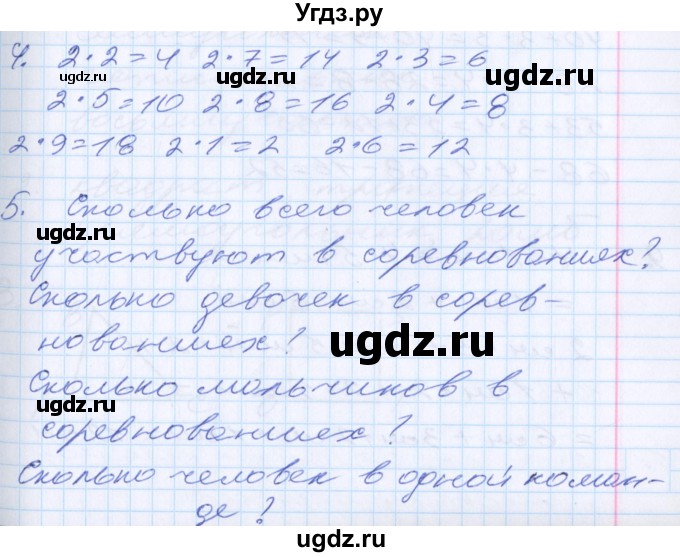 Угдз.ру
4. 2·2=4 2·7=14 2·3=6
2·5=10 2·8=16 2·4=8
2·9=18 2·1=2 2·6=12
5. Сколько всего человек
участвуют в соревнованиях?
Сколько девочек в сорев-
нованиях?
Сколько мальчиков в
соревнованиях?
Сколько человек в одной коман-
де?
ugdz.ru
ugdz.ru
ugdz.ru
ugdz.ru
ugdz.ru
ugdz.ru
ugdz.ru
ugdz.ru